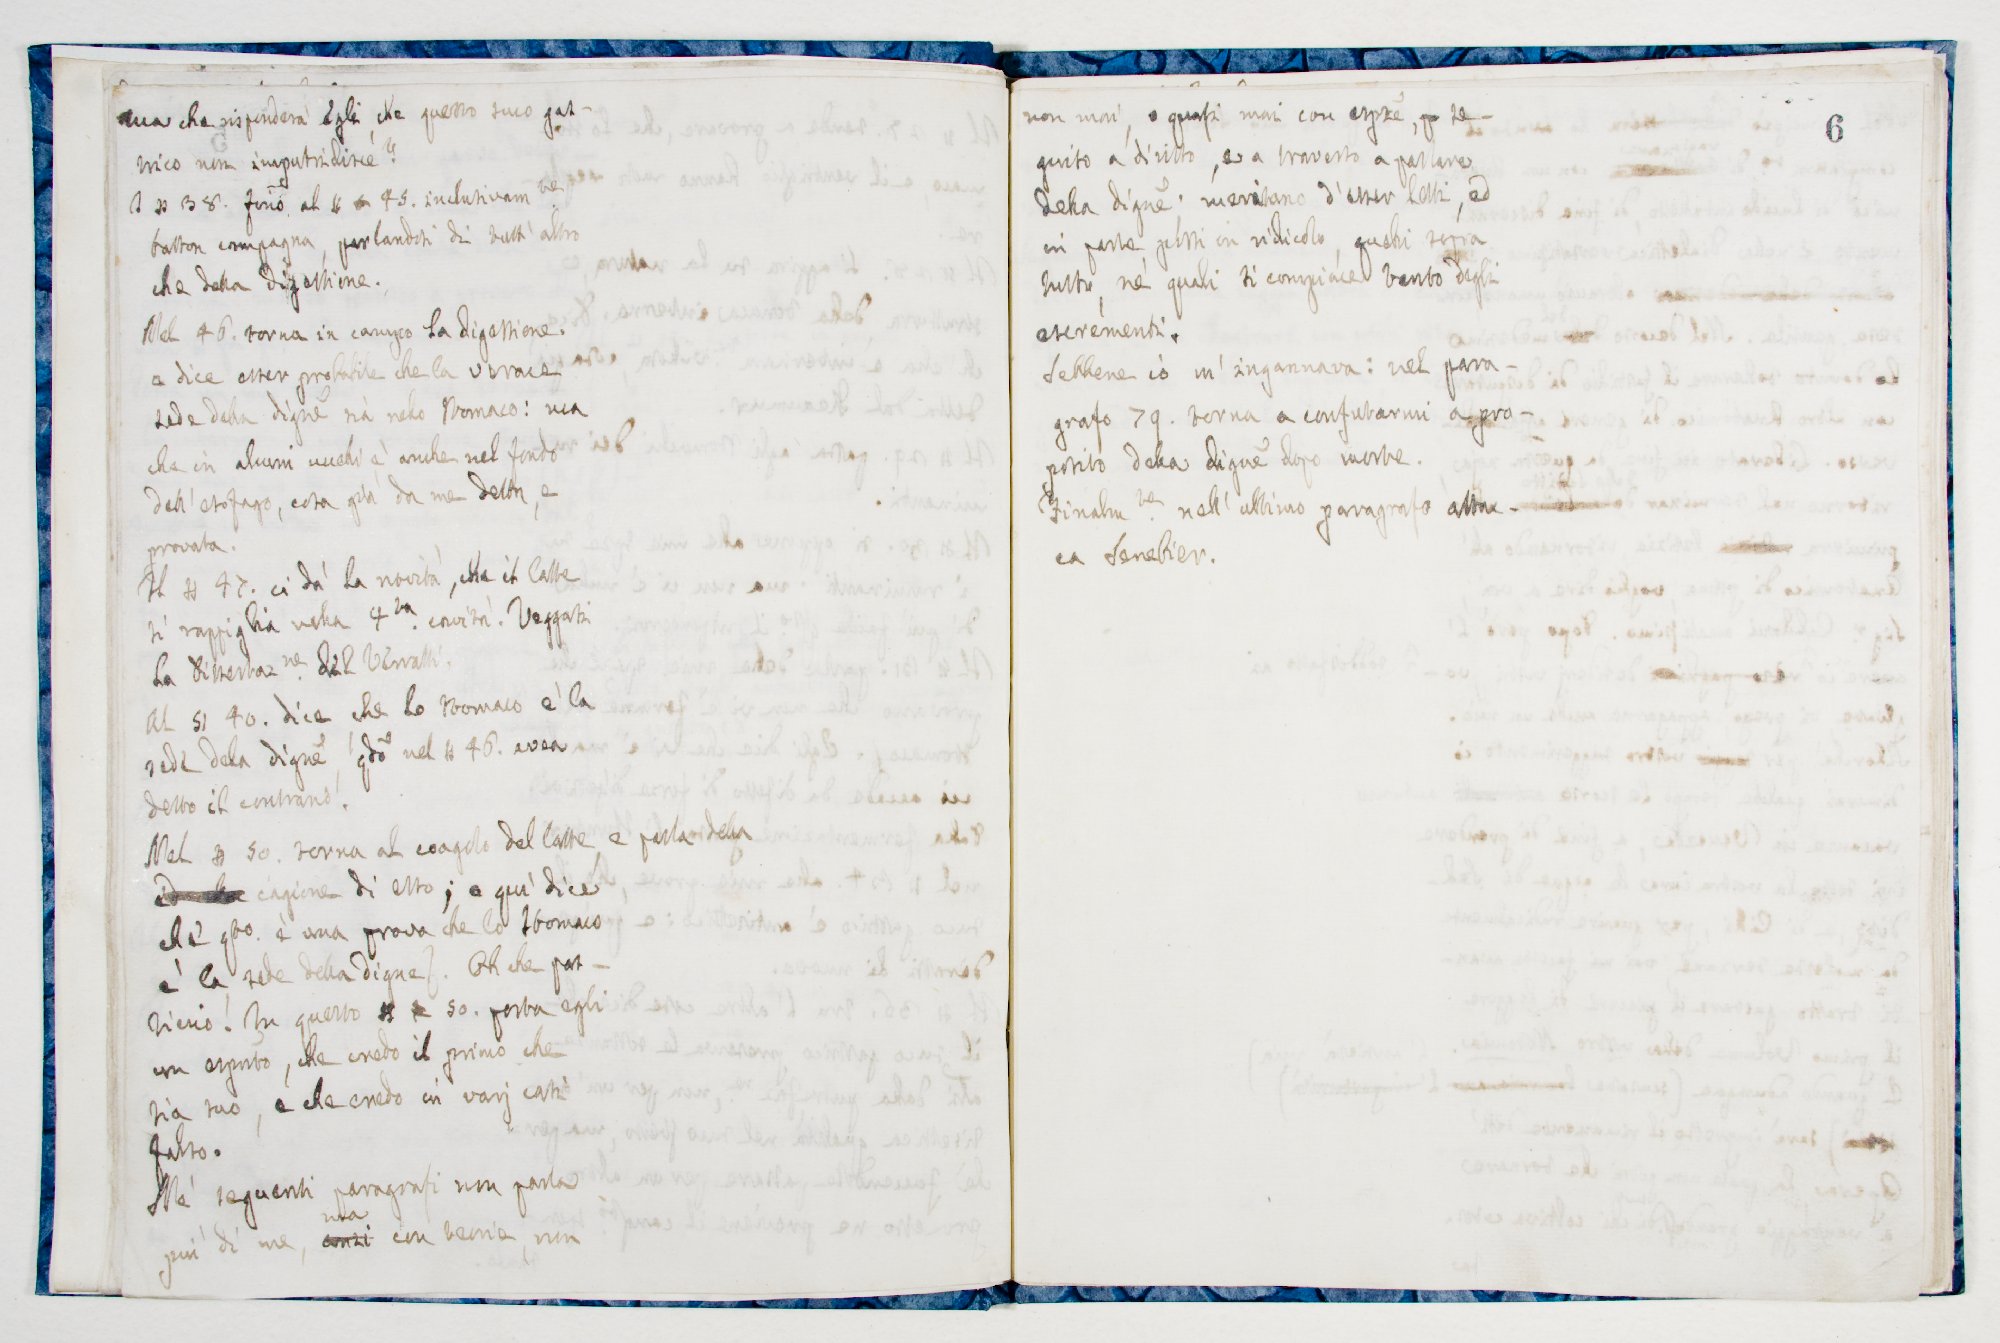 ma che risponderà Egli, che questo suco gas-
trico non imputridisce?
I § 38. fino al § 45. inclusivam.te
batton campagna, parlandosi di tutt' altro
che della digestione.
Nel 46. torna in campo la digestione.
e dice esser probabile che la verace
sede della dignẽ sià nello stomaco: ma
che in alcuni uccelli è anche nel fondo
dell' esofago, cosa già da me detta, e
provata.
Il § 47. ci dà la novità, che il latte
si rappiglia nella 4ta. cavità. Veggasi
la Dissertaz.ne del Verratti.
Al § 40. dice che lo stomaco è la
sede della dignẽ, qdõ nel § 46. avea
detto il contrario.
Nel § 50. torna al coagolo del latte, e parla della
cagione di esso; e quì dice
che qto. è una prova che lo stomaco
è la sede della digne. Oh che pas-
ticcio! In questo § 50. porta egli
un esptõ, che credo il primo che
sia suo, e che credo in varj casi
falso.
Ne' seguenti paragrafi non parla
più di me, ma con teorie, non
6
non mai, o quasi mai con espzẽ, se-
guita a diritto, e a traverso a parlare
della dignẽ: meritano d'esser letti, ed
in parte posti in ridicolo, quelli sopra
tutto, nè quali si compiace tanto degli
escrementi.
Sebbene iò m' ingannava: nel para-
grafo 79. torna a confutarmi a pro-
posito della dignẽ dopo morte.
Finalm.te nell' ultimo paragrafo attac-
ca Senebier.